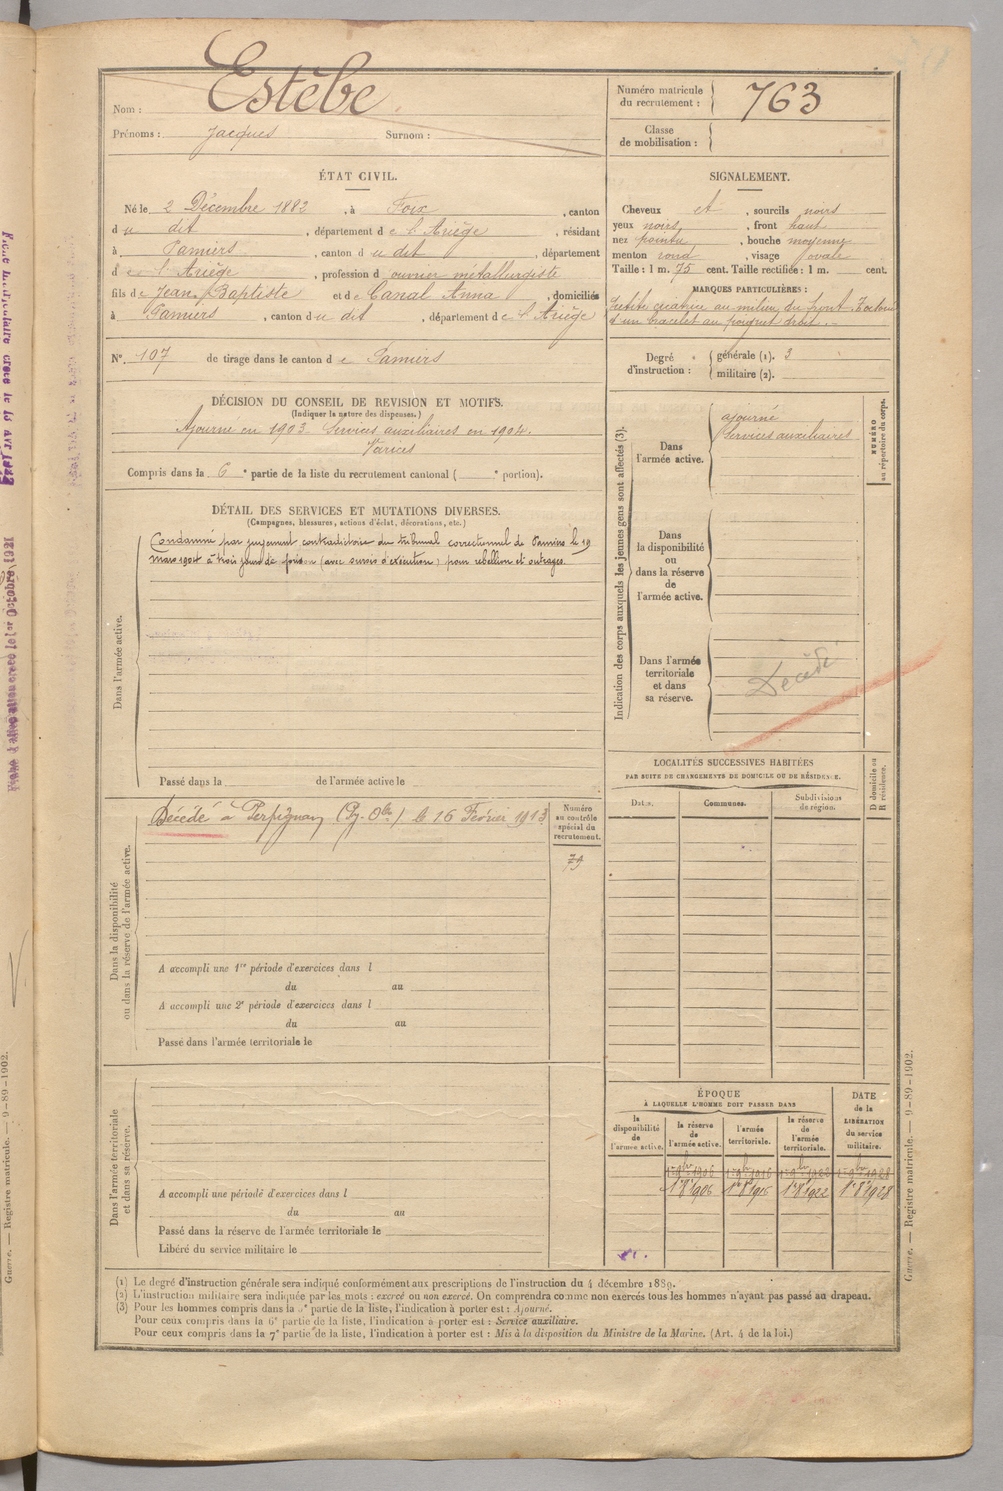 Nom : Estèbe
Prénoms : Jacques Surnom :
Numéro matricule du recrutement : 763
Classe de mobilisation :
ÉTAT CIVIL.
Né le 2 Décembre 1882, à Foix, canton
du dit, département de l'Ariège, résidant
à Pamiers, canton du dit, département
de l'Ariège, profession d ouvrier métallurgiste
fils de Jean Baptiste et de Canal Anna, domiciliés
à Pamiers, canton du dit, département de l'Ariège
N° 107 de tirage dans le canton de Pamiers
SIGNALEMENT.
Cheveux et, sourcils noirs
yeux noirs, front haut
nez pointu, bouche moyenne
menton rond, visage ovale
Taille : 1 m. 75 cent. Taille rectifiée : 1 m. cent.
MARQUES PARTICULIÈRES :
Petite cicatrice au milieu du front
d'un bracelet au poignet droit.
Degré d'instruction :
générale (1). 3
militaire (2).
DÉCISION DU CONSEIL DE REVISION ET MOTIFS.
(Indiquer la nature des dispenses.)
Ajourné en 1903. Services auxiliaires en 1904.
Varices
Compris dans la 6e partie de la liste du recrutement cantonal ( e portion).
DÉTAIL DES SERVICES ET MUTATIONS DIVERSES.
(Campagnes, blessures, actions d'éclat, décorations, etc.)
Dans l'armée active.
Condamné par jugement contradictoire du tribunal correctionnel de Pamiers le 19
mars 1904 à trois jours de prison (avec sursis d'exécution) pour rébellion et outrages.
Passé dans la de l'armée active le
Dans la disponibilité ou dans la réserve de l'armée active.
Décédé à Perpignan (Py. Oles) le 16 Février 1913
Numéro au contrôle spécial du recrutement.
79
A accompli une 1re période d'exercices dans l
du au
A accompli une 2e période d'exercices dans l
du au
Passé dans l'armée territoriale le
Dans l'armée territoriale et dans sa réserve.
A accompli une période d'exercices dans l
du au
Passé dans la réserve de l'armée territoriale le
Libéré du service militaire le
Indication des corps auxquels les jeunes gens sont affectés (3).
NUMÉRO au répertoire du corps.
Dans l'armée active.
ajourné
Services auxiliaires
Dans la disponibilité ou dans la réserve de l'armée active.
Dans l'armée territoriale et dans sa réserve.
Décédé
LOCALITÉS SUCCESSIVES HABITÉES
PAR SUITE DE CHANGEMENTS DE DOMICILE OU DE RÉSIDENCE.
Dates. Communes. Subdivisions de région. D domicile ou R résidence.
ÉPOQUE
À LAQUELLE L'HOMME DOIT PASSER DANS
DATE de la LIBÉRATION du service militaire.
la disponibilité de l'armée active.
la réserve de l'armée active.
l'armée territoriale.
la réserve de l'armée territoriale.
1er 9bre 1906 1er 9bre 1916 1er 9bre 1922 1er 9bre 1928
1er 8bre 1906 1er 8bre 1916 1er 8bre 1922 1er 8bre 1928
(1) Le degré d'instruction générale sera indiqué conformément aux prescriptions de l'instruction du 4 décembre 1889.
(2) L'instruction militaire sera indiquée par les mots : exercé ou non exercé. On comprendra comme non exercés tous les hommes n'ayant pas passé au drapeau.
(3) Pour les hommes compris dans la 5e partie de la liste, l'indication à porter est : Ajourné.
Pour ceux compris dans la 6e partie de la liste, l'indication à porter est : Service auxiliaire.
Pour ceux compris dans la 7e partie de la liste, l'indication à porter est : Mis à la disposition du Ministre de la Marine. (Art. 4 de la loi.)
Guerre. — Registre matricule. — 9-89-1902.
Guerre. — Registre matricule. — 9-89-1902.